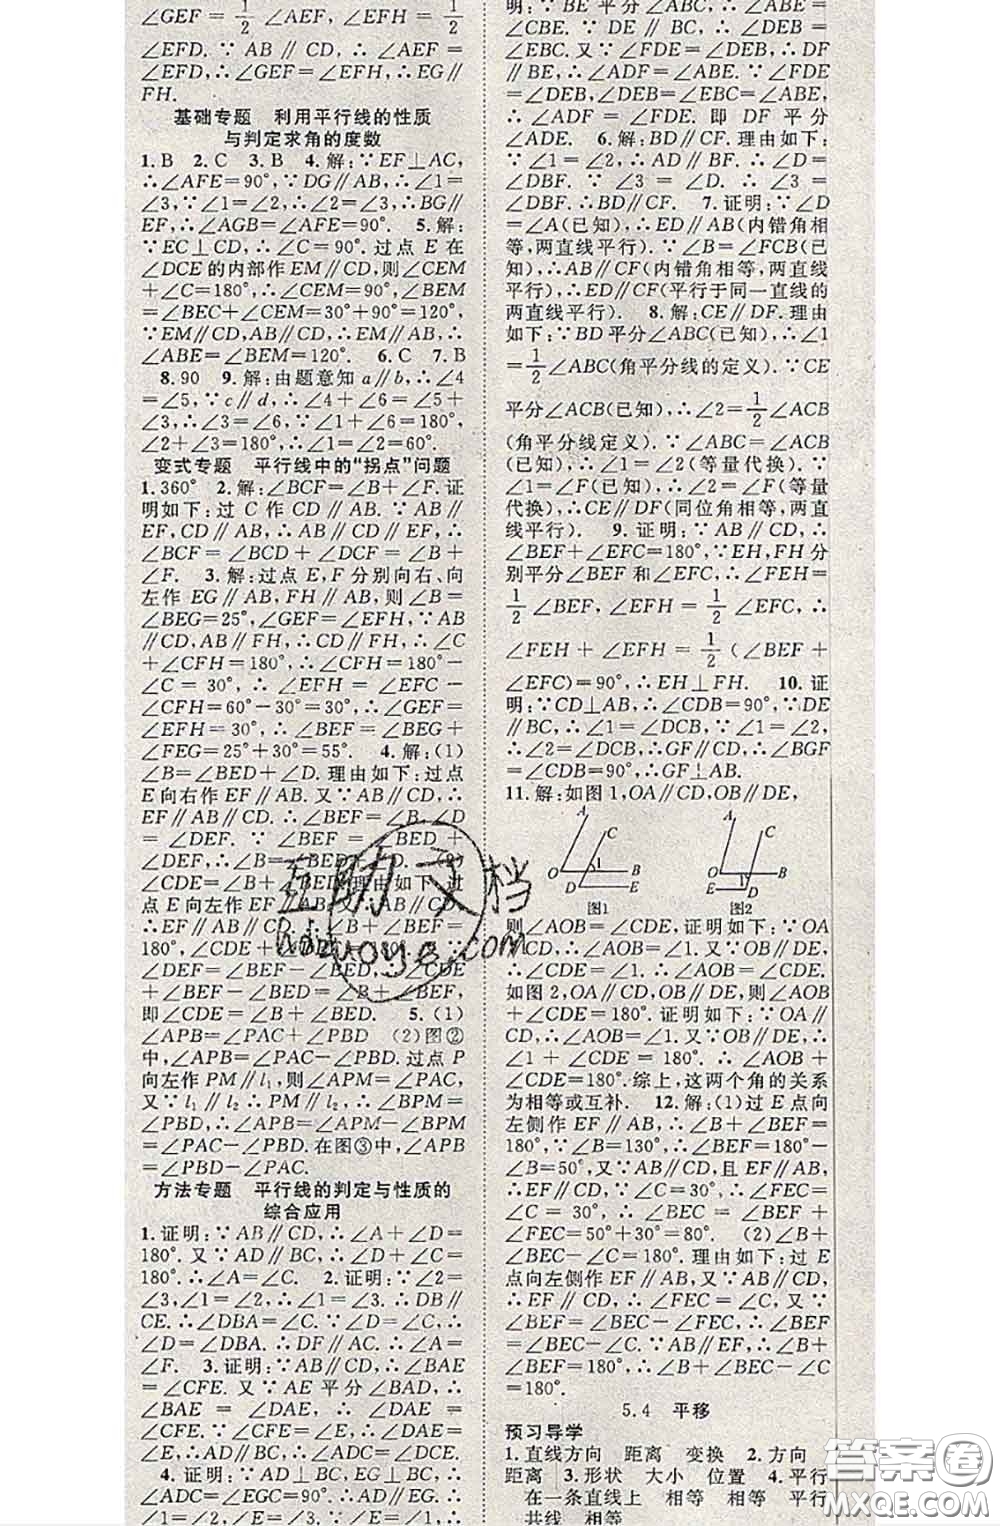 ∠GEF=1/2 ∠AEF, ∠EFH=1/2
∠EFD.∵AB∥CD,∴∠AEF=
∠EFD,∴∠GEF=∠EFH,∴EG∥
FH.
基础专题 利用平行线的性质
与判定求角的度数
1.B 2.C 3.B 4.解:∵EF⊥AC,
∴∠AFE=90°,∵DG∥AB,∴∠1=
∠3,∵∠1=∠2,∴∠2=∠3,∴BG∥
EF,∴∠AGB=∠AFE=90°. 5.解:
∵EC⊥CD,∴∠C=90°.过点E在
∠DCE的内部作EM∥CD,则∠CEM
+∠C=180°,∴∠CEM=90°,∠BEM
=∠BEC+∠CEM=30°+90°=120°.
∵EM∥CD,AB∥CD,∴EM∥AB,∴
∠ABE=∠BEM=120°. 6.C 7.B
8.90 9.解:由题意知a∥b,∴∠4
=∠5,∵c∥d,∴∠4+∠6=∠5+
∠6,∴∠3=∠6,∵∠1+∠6=180°,
∠2+∠3=180°,∴∠1+∠2=60°.
变式专题 平行线中的“拐点”问题
1.360° 2.解:∠BCF=∠B+∠F.证
明如下:过C作CD∥AB.∵AB∥
EF,CD∥AB,∴AB∥CD∥EF,∴
∠BCF=∠BCD+∠DCF=∠B+
∠F. 3.解:过点E,F分别向右、向
左作EG∥AB,FH∥AB,则∠B=
∠BEG=25°,∠GEF=∠EFH,∵AB
∥CD,AB∥FH,∴CD∥FH,∴∠C
+∠CFH=180°,∴∠CFH=180°-
∠C=30°,∴∠EFH=∠EFC-
∠CFH=60°-30°=30°,∴∠GEF=
∠EFH=30°,∴∠BEF=∠BEG+
∠FEG=25°+30°=55°. 4.解:(1)
∠B=∠BED+∠D.理由如下:过点
E向右作EF∥AB.又∵AB∥CD,∴
EF∥AB∥CD.∴∠BEF=∠B,∠D
=∠DEF.∵∠BEF=∠BED+
∠DEF,∴∠B=∠BED+∠D. (2)
∠CDE=∠B+∠BED.理由如下:过
点E向左作EF∥AB,又∵AB∥CD,
∴EF∥AB∥CD.∴∠B+∠BEF=
180°,∠CDE+∠DEF=180°.又∵
∠DEF=∠BEF-∠BED,∴∠CDE
+∠BEF-∠BED=∠B+∠BEF,
即∠CDE=∠B+∠BED. 5.(1)
∠APB=∠PAC+∠PBD (2)图②
中,∠APB=∠PAC-∠PBD.过点P
向左作PM∥l₁,则∠APM=∠PAC,
又∵l₁∥l₂∴PM∥l₂,∴∠BPM=
∠PBD,∴∠APB=∠APM-∠BPM
=∠PAC-∠PBD.在图③中,∠APB
=∠PBD-∠PAC.
方法专题 平行线的判定与性质的
综合应用
1.证明:∵AB∥CD,∴∠A+∠D=
180°.又∵AD∥BC,∴∠D+∠C=
180°.∴∠A=∠C. 2.证明:∵∠2=
∠3,∠1=∠2,∴∠1=∠3.∴DB∥
CE.∴∠DBA=∠C.∵∠D=∠C,∴
∠D=∠DBA.∴DF∥AC.∴∠A=
∠F. 3.证明:∵AB∥CD,∴∠BAE
=∠CFE.又∵AE平分∠BAD,∴
∠BAE=∠DAE.∴∠DAE=
∠CFE.∵∠CFE=∠E,∴∠DAE=
∠E,∴AD∥BC,∴∠ADC=∠DCE.
4.证明:∵AD⊥BC,EG⊥BC,∴
∠ADC=∠EGC=90°.∴AD∥EG,∴
明:∵BE平分∠ABC,∴∠ABE=
∠CBE.∵DE∥BC,∴∠DEB=
∠EBC.又∵∠FDE=∠DEB,∴DF
∥BE,∴∠ADF=∠ABE.∵∠FDE
=∠DEB,∠DEB=∠EBC=∠ABE,
∴∠ADF=∠FDE.即DF平分
∠ADE. 6.解:BD∥CF.理由如下:
∵∠1=∠2,∴AD∥BF.∴∠D=
∠DBF.∵∠3=∠D.∴∠3=
∠DBF.∴BD∥CF. 7.证明:∵∠D
=∠A(已知),∴ED∥AB(内错角相
等,两直线平行).∵∠B=∠FCB(已
知),∴AB∥CF(内错角相等,两直线
平行),∴ED∥CF(平行于同一直线的
两直线平行). 8.解:CE∥DF.理由
如下:∵BD平分∠ABC(已知),∴∠1
=1/2∠ABC(角平分线的定义).∵CE
平分∠ACB(已知),∴∠2=1/2∠ACB
(角平分线定义).∵∠ABC=∠ACB
(已知),∴∠1=∠2(等量代换).∵
∠1=∠F(已知),∴∠2=∠F(等量
代换),∴CE∥DF(同位角相等,两直
线平行). 9.证明:∵AB∥CD,∴
∠BEF+∠EFC=180°,∵EH,FH分
别平分∠BEF和∠EFC,∴∠FEH=
1/2∠BEF,∠EFH=1/2∠EFC,∴
∠FEH+∠EFH=1/2(∠BEF+
∠EFC)=90°,∴EH⊥FH. 10.证
明:∵CD⊥AB,∴∠CDB=90°,∵DE
∥BC,∴∠1=∠DCB,∵∠1=∠2,
∴∠2=∠DCB,∴GF∥CD,∴∠BGF
=∠CDB=90°,∴GF⊥AB.
11.解:如图1,OA∥CD,OB∥DE,
A C O 1 B D E 图1
A C O B E D 图2
则∠AOB=∠CDE,证明如下:∵OA
∥CD,∴∠AOB=∠1.又∵OB∥DE,
∴∠CDE=∠1.∴∠AOB=∠CDE.
如图2,OA∥CD,OB∥DE,则∠AOB+
∠CDE=180°.证明如下:∵OA∥
CD,∴∠AOB=∠1.又∵OB∥DE,∴
∠1+∠CDE=180°.∴∠AOB+
∠CDE=180°.综上,这两个角的关系
为相等或互补. 12.解:(1)过E点向
左侧作EF∥AB,∴∠B+∠BEF=
180°,∵∠B=130°,∴∠BEF=180°-
∠B=50°,又∵AB∥CD,且EF∥AB,
∴EF∥CD,∵∠C=30°,∴∠FEC=
∠C=30°,∴∠BEC=∠BEF+
∠FEC=50°+30°=80°. (2)∠B+
∠BEC-∠C=180°.理由如下:过E
点向左侧作EF∥AB,又∵AB∥CD,
∴EF∥CD,∴∠FEC=∠C,又∵
∠BEF=∠BEC-∠FEC,∴∠BEF
=∠BEC-∠C.又∵AB∥EF,∴∠B+
∠BEF=180°,∴∠B+∠BEC-∠C
=180°.
5.4 平移
预习导学
1.直线方向 距离 变换 2.方向
距离 3.形状 大小 位置 4.平行
在一条直线上 相等 相等 平行
共线 相等
互助文档
hdzuoye.com
答案圈
MXQE.COM